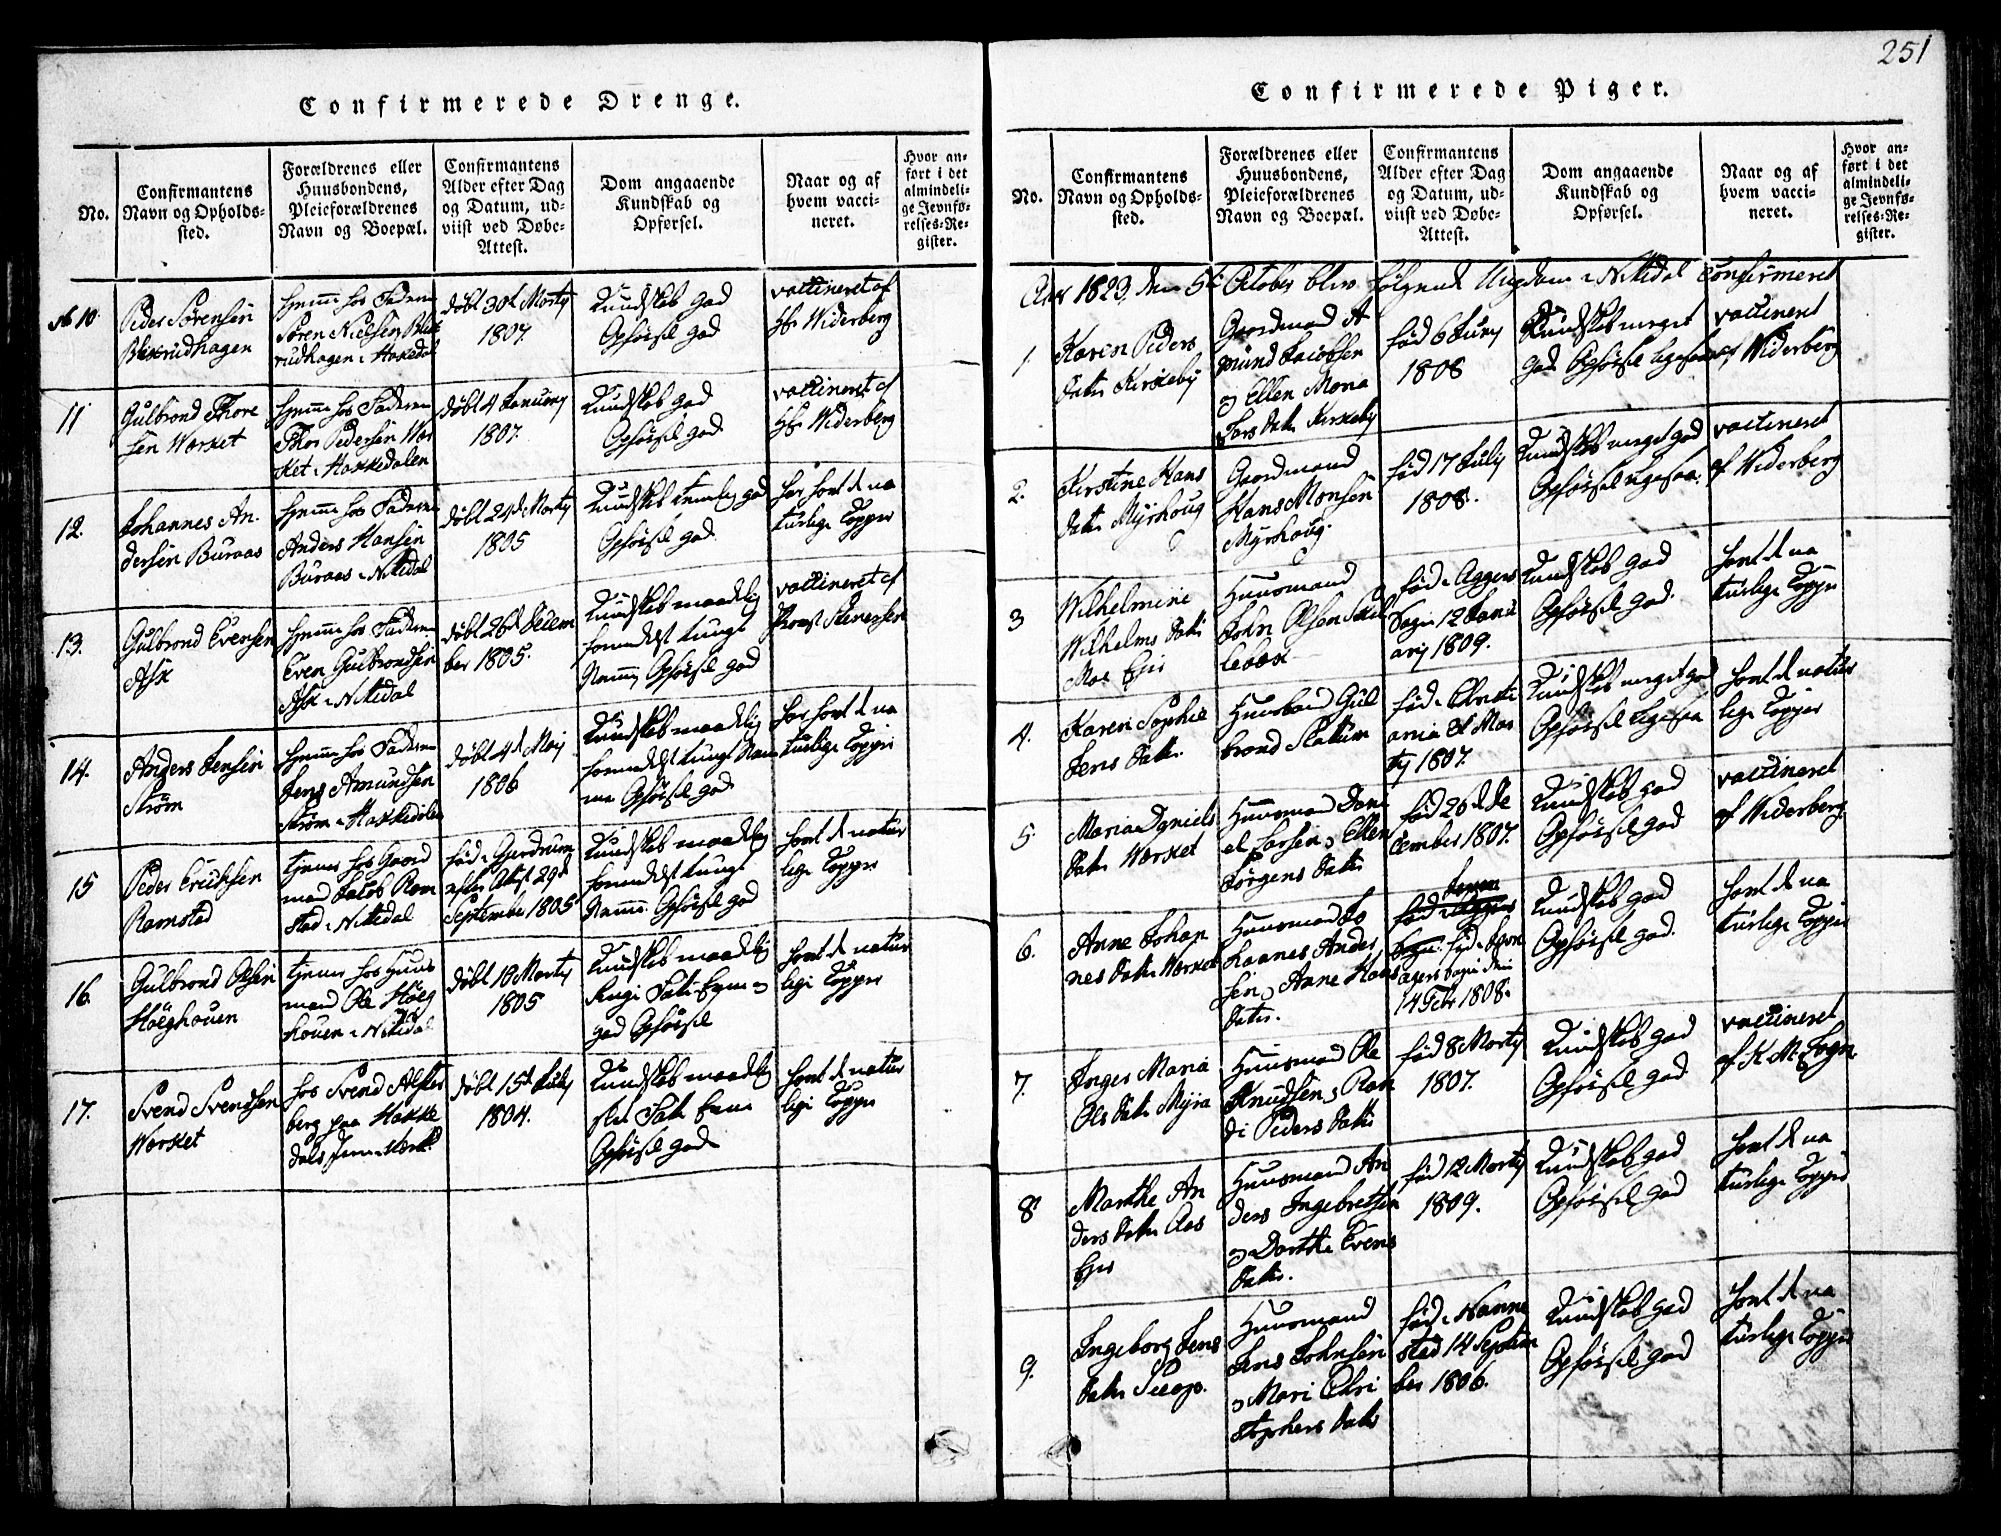 251
Confirmerede Drenge.
No.
Confirmantens
Navn og Opholds-
sted.
Forældrenes eller
Huusbondens,
Pleieforældrenes
Navn og Boepæl.
Confirmantens
Alder efter Dag
og Datum, ud-
viist ved Døbe-
Attest.
Dom angaaende
Kundskab og
Opførsel.
Naar og af
hvem vacci-
neret.
Hvor an-
ført i det
almindeli-
ge Jevnfø-
relses-Re-
gister.
No 10
Peder Sørensen
Blixrudhagen
hjemme hos Faderen
Søren Nielsen Blix
rudhagen i Hakedal
døbt 30d Marty
1807.
Kundskab god
Opførsel god
vaccineret af
Hr Widerberg
11
Gulbrand Thore
sen Værket
hjemme hos Faderen
Thor Pedersen Vær
ket i Hakkedalen
døbt 4 January
1807.
Kundskab god
Opførsel god
vaccineret af
Hr Widerberg
12.
Johannes An-
dersen Buraas
hjemme hos Faderen
Anders Hansen
Buraas i Nitedal
døbt 24d Marty
1805
Kundskab temlig god
Opførsel god
har havt de na
turlige Kopper
13.
Gulbrand Evensen
Ask
hjemme hos Faderen
Even Gulbrandsen
Ask i Nitedal
døbt 26d Decem
ber 1805.
Kundskab maadelig
formedelst tungt
Nemme, Opførsel god
vaccineret af
Provst Stenersen
14.
Anders Jensen
Strøm
hjemme hos Faderen
Jens Amundsen
Strøm i Hakkedalen
døbt 4d May
1806
Kundskab maadelig
formedelst tungt Nem
me Opførsel god
har havt de na
turlige Kopper
15
Peder Erichsen
Ramstad
tjener hos Gaard
mand Jacob Ram
stad i Nittedal
fød i Gjerdrum
efter Attest 29d
September 1805
Kundskab maadelig
formedelst tungt
Nemme. Opførsel god
havt de natur
lige Kopper
16.
Gulbrand Olsen
Høeghouen
tjener hos Huus
mand Ole Høeg
houen i Nitedal
døbt 18 Marty
1805
Kundskab maadelig
god Opførsel
havt de natur
lige Kopper
17.
Svend Svendsen
Værket
hos Svend Alfter
berg paa Hakke
dals Jernværk
døbt 15d July
1804.
Kundskab maadelig
Opførsel god
havt de natur
lige Kopper
Confirmerede Piger.
No.
Confirmantens
Navn og Opholds-
sted.
Forældrenes eller
Huusbondens,
Pleieforældrenes
Navn og Boepæl.
Confirmantens
Alder efter Dag
og Datum, ud-
viist ved Døbe-
Attest.
Dom angaaende
Kundskab og
Opførsel.
Naar og af
hvem vacci-
neret.
Hvor an-
ført i det
almindeli-
ge Jevnfø-
relses-Re-
gister.
Aar 1823 den 5t October blev følgende Ungdom i Nitedal Confirmeret
1
Karen Peders
Datter Kirkeby
Gaardmand A
mund Jacobsen
og Ellen Maria
Lars Datter Kirkeby
fød 6 Juny
1808
Kundskab meget
god Opførsel ligesaa
vaccineret
af Widerberg
2.
Kirstine Hans
Datter Myrhoug
Gaardmand
Hans Monsen
Myrhoug
fød 17 July
1808.
Kundskab meget god
Opførsel ligesaa.
vaccineret
af Widerberg
3
Wilhelmine
Wilhelms Datter
Moe Eier
Huusmand
John Olsen
lebæk
fød i Aggers
Sogn 12 Janu
ary 1809.
Kundskab god
Opførsel god.
havt de na
turlige Kopper
4.
Karen Sophie
Jens Datter
Huusbond Gul
brand Slattum
fød i Christi
ania Mar
ty 1807.
Kundskab meget god
Opførsel ligesaa
havt de natur
lige Kopper
5.
Maria Daniels
Datter Værket
Huusmand Dani
el Larsen og Ellen
Jørgens Datter
fød 20d De
cember 1807.
Kundskab god
Opførsel god
vaccineret
af Widerberg
6.
Anne Johan
nes Datter Værket
Huusmand Jo
hannes Ander
sen og Anne Hans
Datter.
fød i
Sogn den
14 Febr 1808.
Kundskab god
Opførsel god.
havt de na
turlige Kopper
7.
Inger Maria
Ols Datter Myra
Huusmand Ole
Knudsen og Ran
di Peders Datter
fød 8 Marty
1807.
Kundskab god
Opførsel god
vaccineret
af K. M. Sogn
8
Marthe An
ders Datter Aas
Eier
Huusmand An
ders Ingebretsen
og Dorthe Evens
Datter.
fød 12 Marty
1809.
Kundskab god
Opførsel god
havt de na
turlige Kopper
9.
Ingeborg Jens
Datter
Huusmand
Jens Johnsen
og Mari Chri
stophers Datter
fød i Nanne
stad 14 Septem
ber 1806.
Kundskab god
Opførsel god
havt de na
turlige Kopper